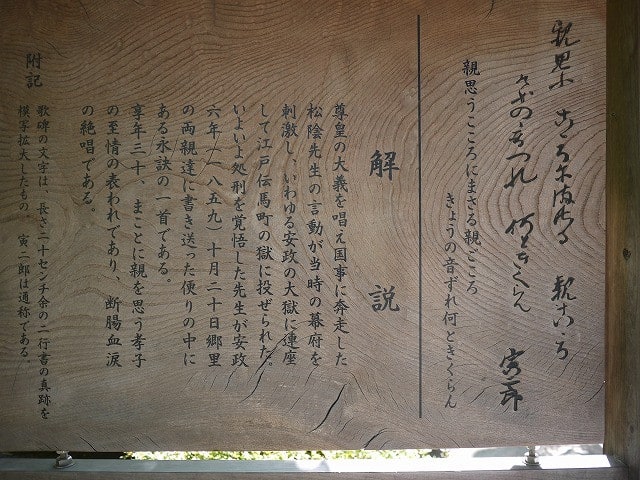 親思ふ こころにまさる 親こころ
けふの音つれ 何ときくらん
寅二郎
親思うこころにまさる親ごころ
きょうの音ずれ何ときくらん
解説
尊皇の大義を唱え国事に奔走した
松陰先生の言動が当時の幕府を
刺激し、いわゆる安政の大獄に連座
して江戸伝馬町の獄に投ぜられた。
いよいよ処刑を覚悟した先生が安政
六年(一八五九)十月二十日郷里
の両親達に書き送った便りの中に
ある永訣の一首である。
享年三十、まことに親を思う孝子
の至情の表われであり、断腸血涙
の絶唱である。
附記
歌碑の文字は、長さ二十センチ余の二行書の真跡を
模写拡大したもの、寅二郎は通称である。